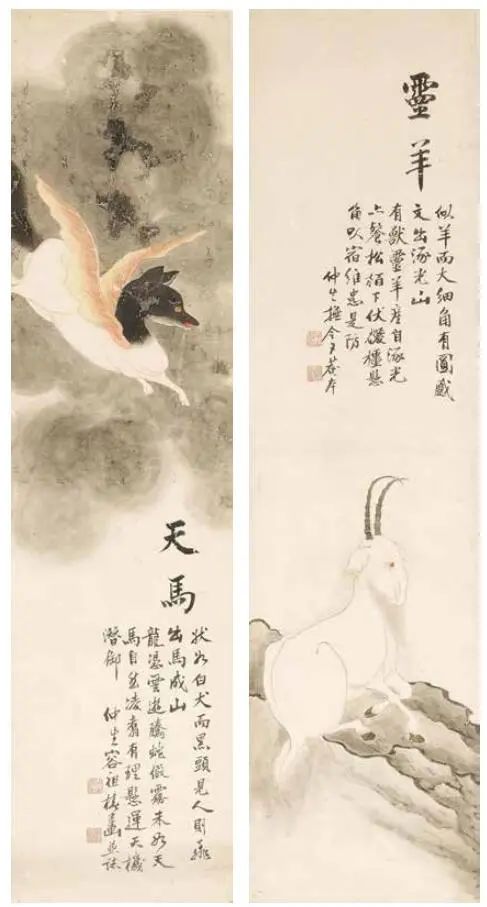 天馬
狀如白犬而黑頭見人則飛
出馬成山
龍憑雲遊騰蛇假霧未如天
馬自然凌翥有理懸運天機
潛御
仲生容祖椿畫並誌
靈羊
似羊而大細角有圓蹙
文出涿光山
有獸靈羊產自涿光
餐松栢下伏懸
角以宿維患是防
仲生撫今夕盦本